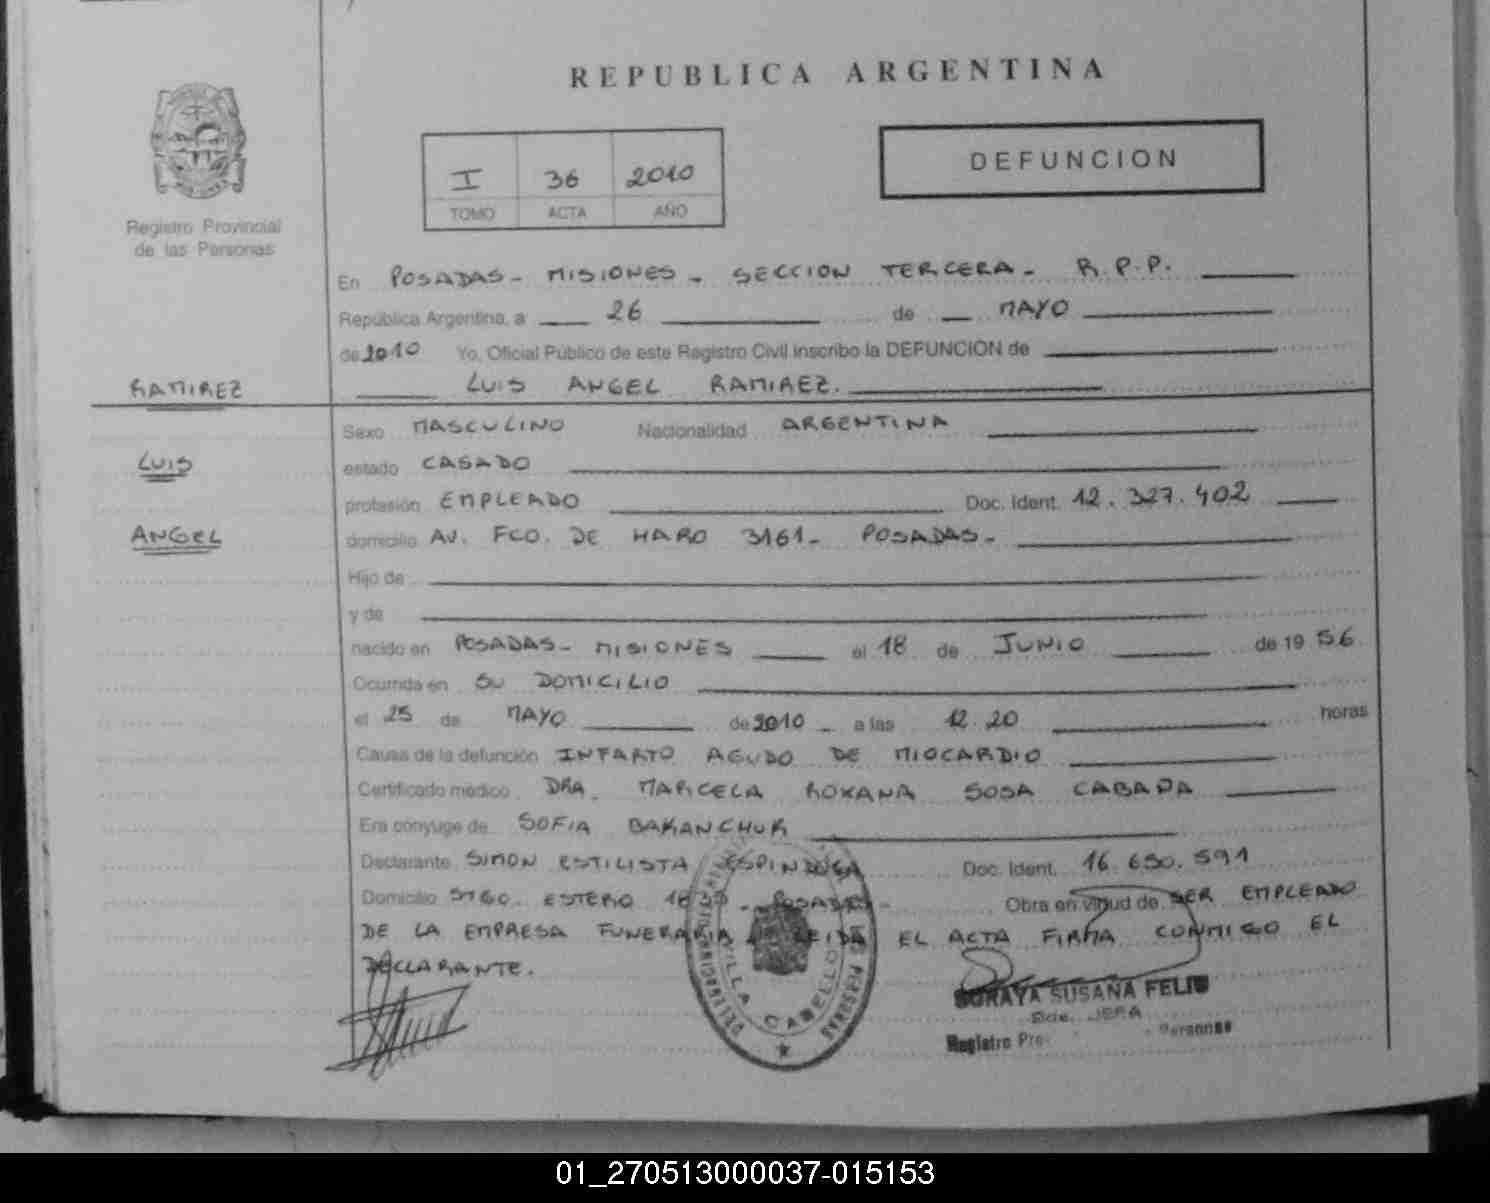 REPUBLICA ARGENTINA
Registro Provincial
de las Personas
I 36 2010
TOMO ACTA AÑO
DEFUNCION
En POSADAS - MISIONES - SECCION TERCERA - R.P.P.
República Argentina, a 26 de MAYO
de 2010 Yo, Oficial Público de este Registro Civil inscribo la DEFUNCION de
RAMIREZ
LUIS ANGEL RAMIREZ.
Sexo MASCULINO Nacionalidad ARGENTINA
LUIS
estado CASADO
profesión EMPLEADO Doc. Ident. 12.327.402
ANGEL
domicilio AV. FCO. DE HARO 3161 - POSADAS -
Hijo de
y de
nacido en POSADAS - MISIONES el 18 de JUNIO de 19 56
Ocurrida en SU DOMICILIO
el 25 de MAYO de 2010 a las 12.20 horas
Causa de la defunción INFARTO AGUDO DE MIOCARDIO
Certificado médico DRA. MARCELA ROXANA SOSA
Era cónyuge de SOFIA
Declarante SIMON ESTILISTA ESPINDOLA Doc. Ident. 16.650.591
Domicilio STGO. ESTERO POSADAS - Obra en virtud de SER EMPLEADO
DE LA EMPRESA FUNERARIA LEIDA EL ACTA FIRMA CONMIGO EL
DECLARANTE.
VILLA CABELLO
SORAYA SUSANA FELIU
Registro
01_270513000037-015153